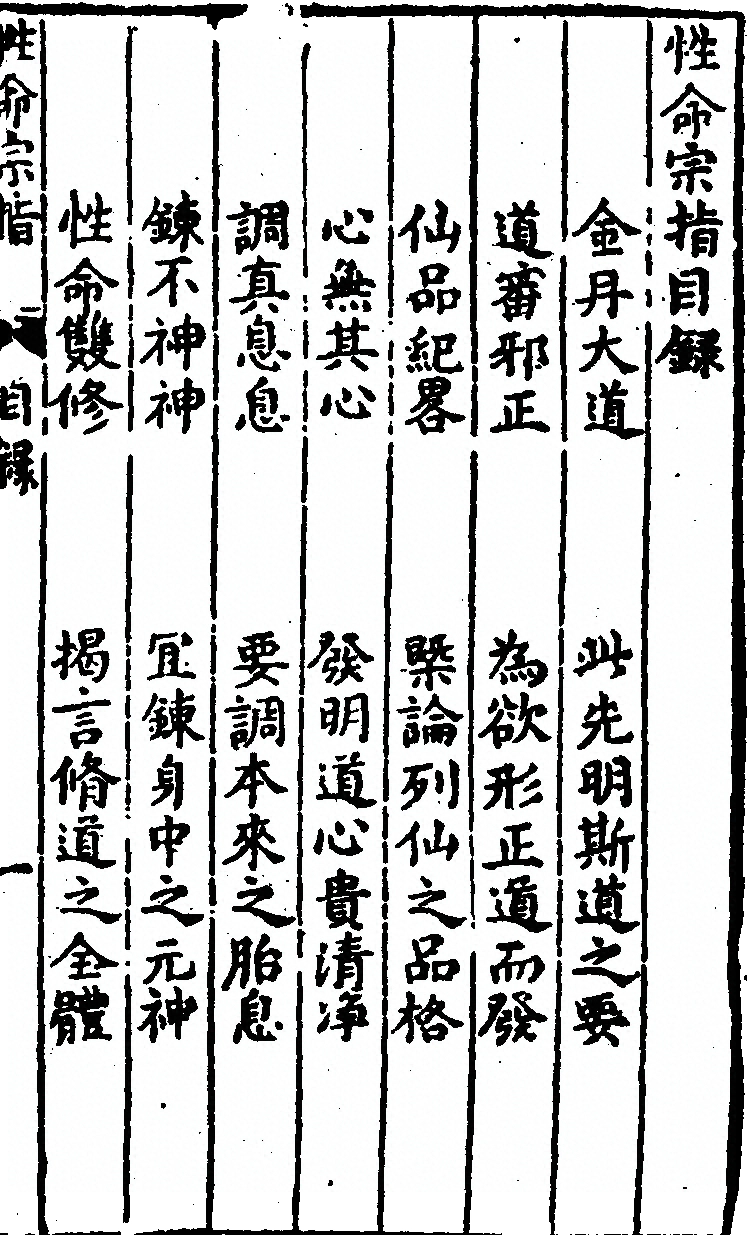 性命宗指目録
金丹大道　此先明斯道之要
道審邪正　為欲形正道而發
仙品紀畧　槩論列仙之品格
心無其心　發明道心貴清净
調真息息　要調本來之胎息
鍊不神神　冝鍊身中之元神
性命雙修　揭言脩道之全體
性命宗指　目録　一